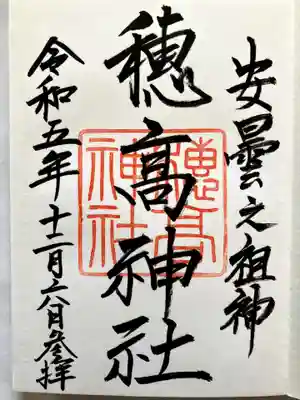 安曇之祖神
穂高神社
穂高
神社
令和五年十二月六日参拝